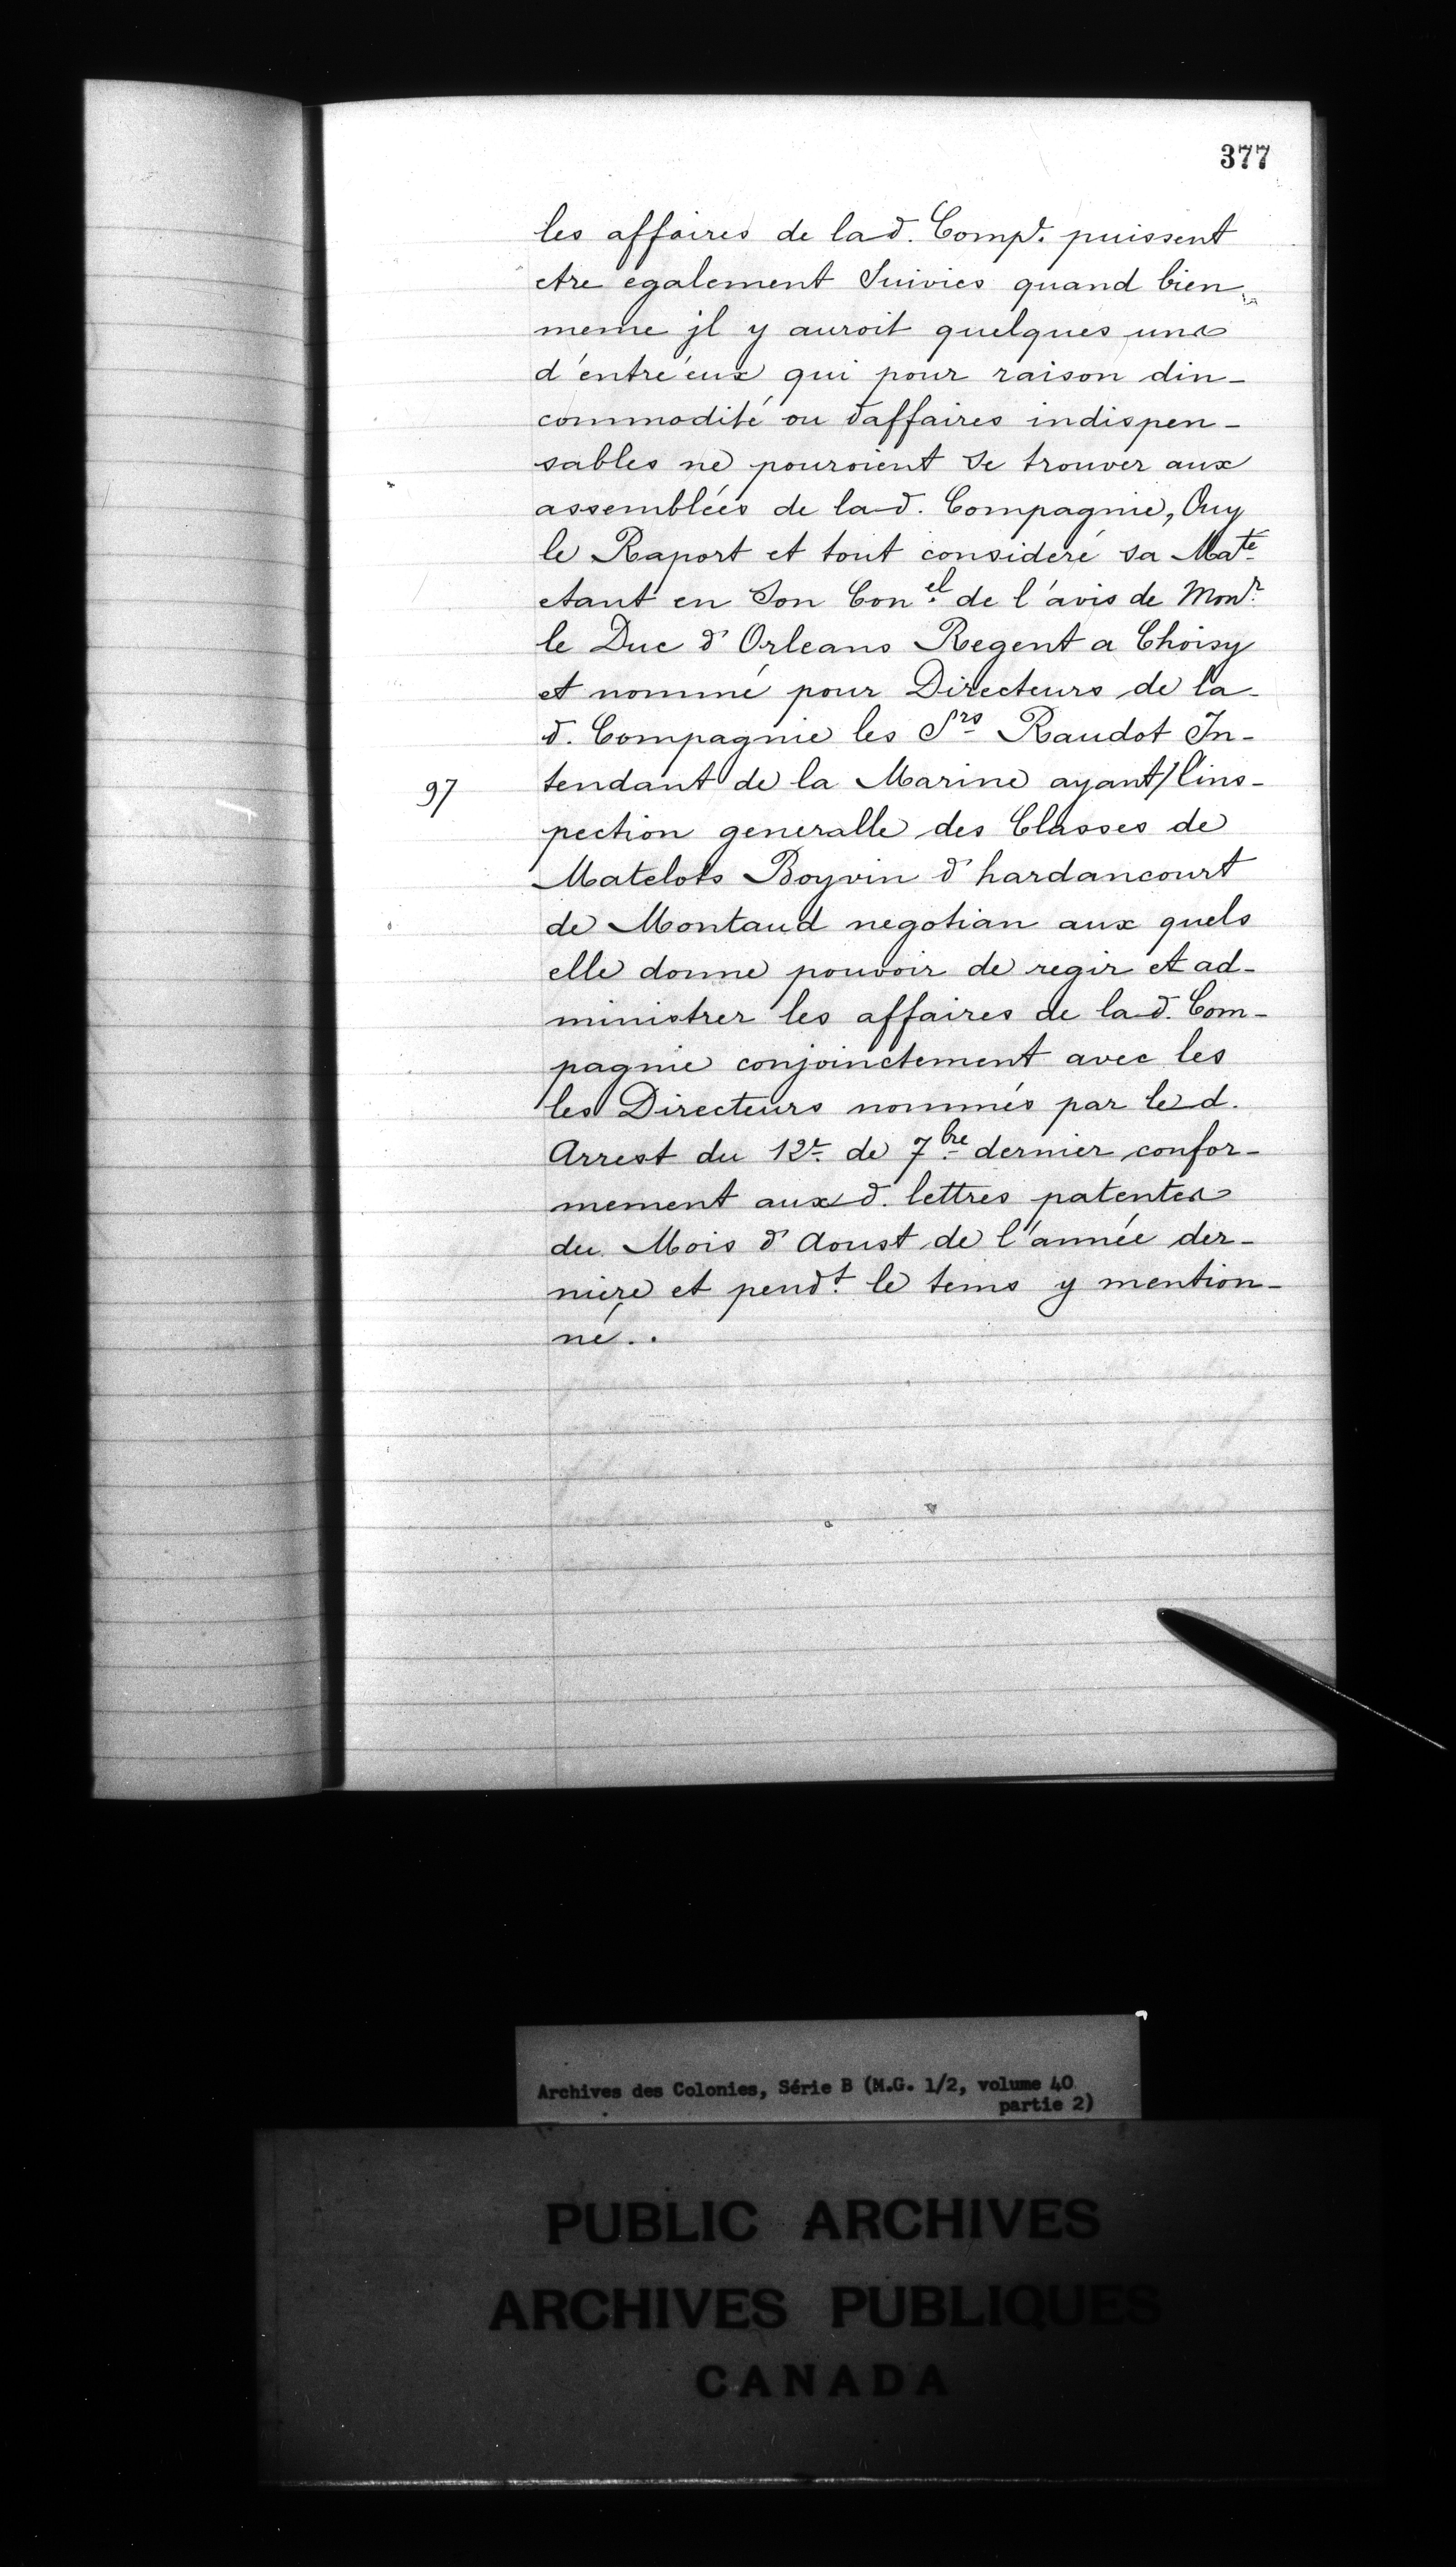 377
les affaires de la d. Comp^e. puissent
etre egalement Suivies quand bien
meme jl y auroit quelques uns
d'entre'eux qui pour raison din-
commodité ou daffaires indispen-
sables ne pouroient se trouver aux
assemblées de la d. Compagnie, Ouy
le Raport et tout consideré sa Ma^te
etant en Son Con^el. de l'avis de Mon^r.
le Duc d'Orleans Regent a Choisy
et nommé pour Directeurs de la
d. Compagnie les S^rs Raudot In-
97 tendant de la Marine ayant/l'ins-
pection generalle des Classes de
Matelots Boyvin d'hardancourt
de Montaud negotian aux quels
elle donne pouvoir de regir et ad-
ministrer les affaires de la d. Com-
pagnie conjoinctement avec les
les Directeurs nommés par le d.
Arrest du 12^e. de 7^bre. dernier confor-
mement aux d. lettres patentes
du Mois d'Aoust de l'année der-
niere et pend^t. le tems y mention-
né..
Archives des Colonies, Série B (M.G. 1/2, volume 40
partie 2)
PUBLIC ARCHIVES
ARCHIVES PUBLIQUES
CANADA